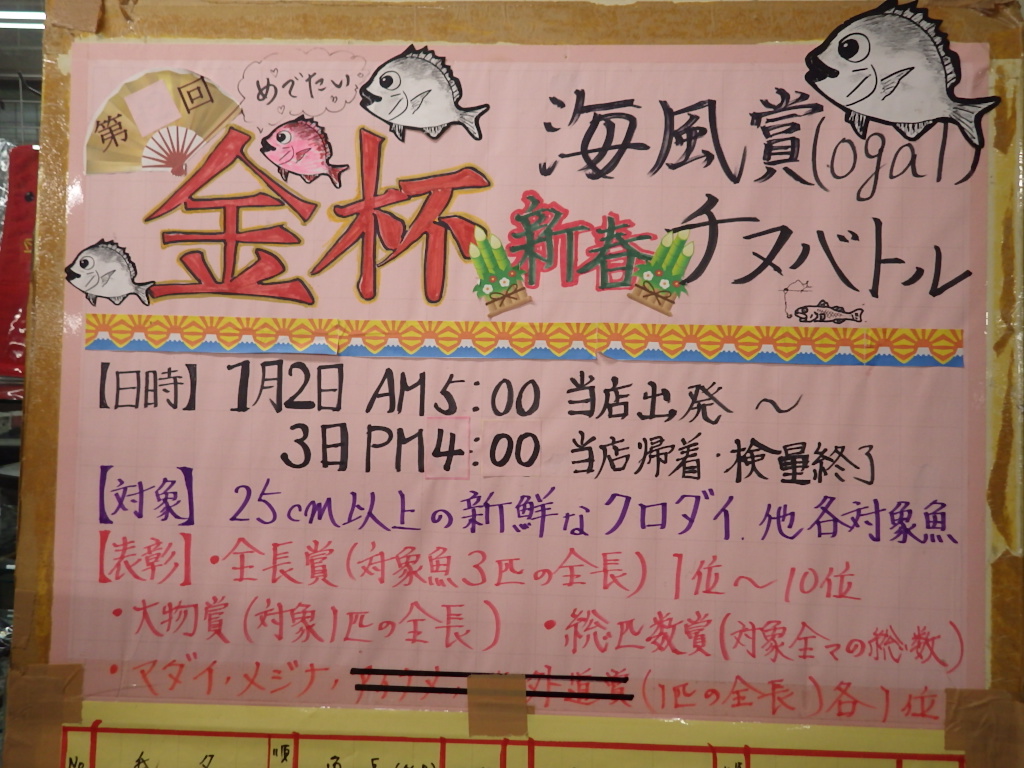 第 回
めでたい
海風賞(ogal)
金杯 新春 チヌバトル
【日時】 1月2日 AM5:00 当店出発 〜
3日 PM4:00 当店帰着・検量終了
【対象】 25cm以上の新鮮なクロダイ. 他各対象魚
【表彰】・全長賞(対象魚3匹の全長) 1位〜10位
・大物賞(対象1匹の全長) ・総匹数賞(対象全ての総数)
・マダイ・メジナ・ 外道賞(1匹の全長)各1位
No 氏 名 順